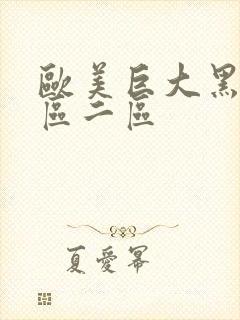 歐美巨大黑
區二區
夏愛冪